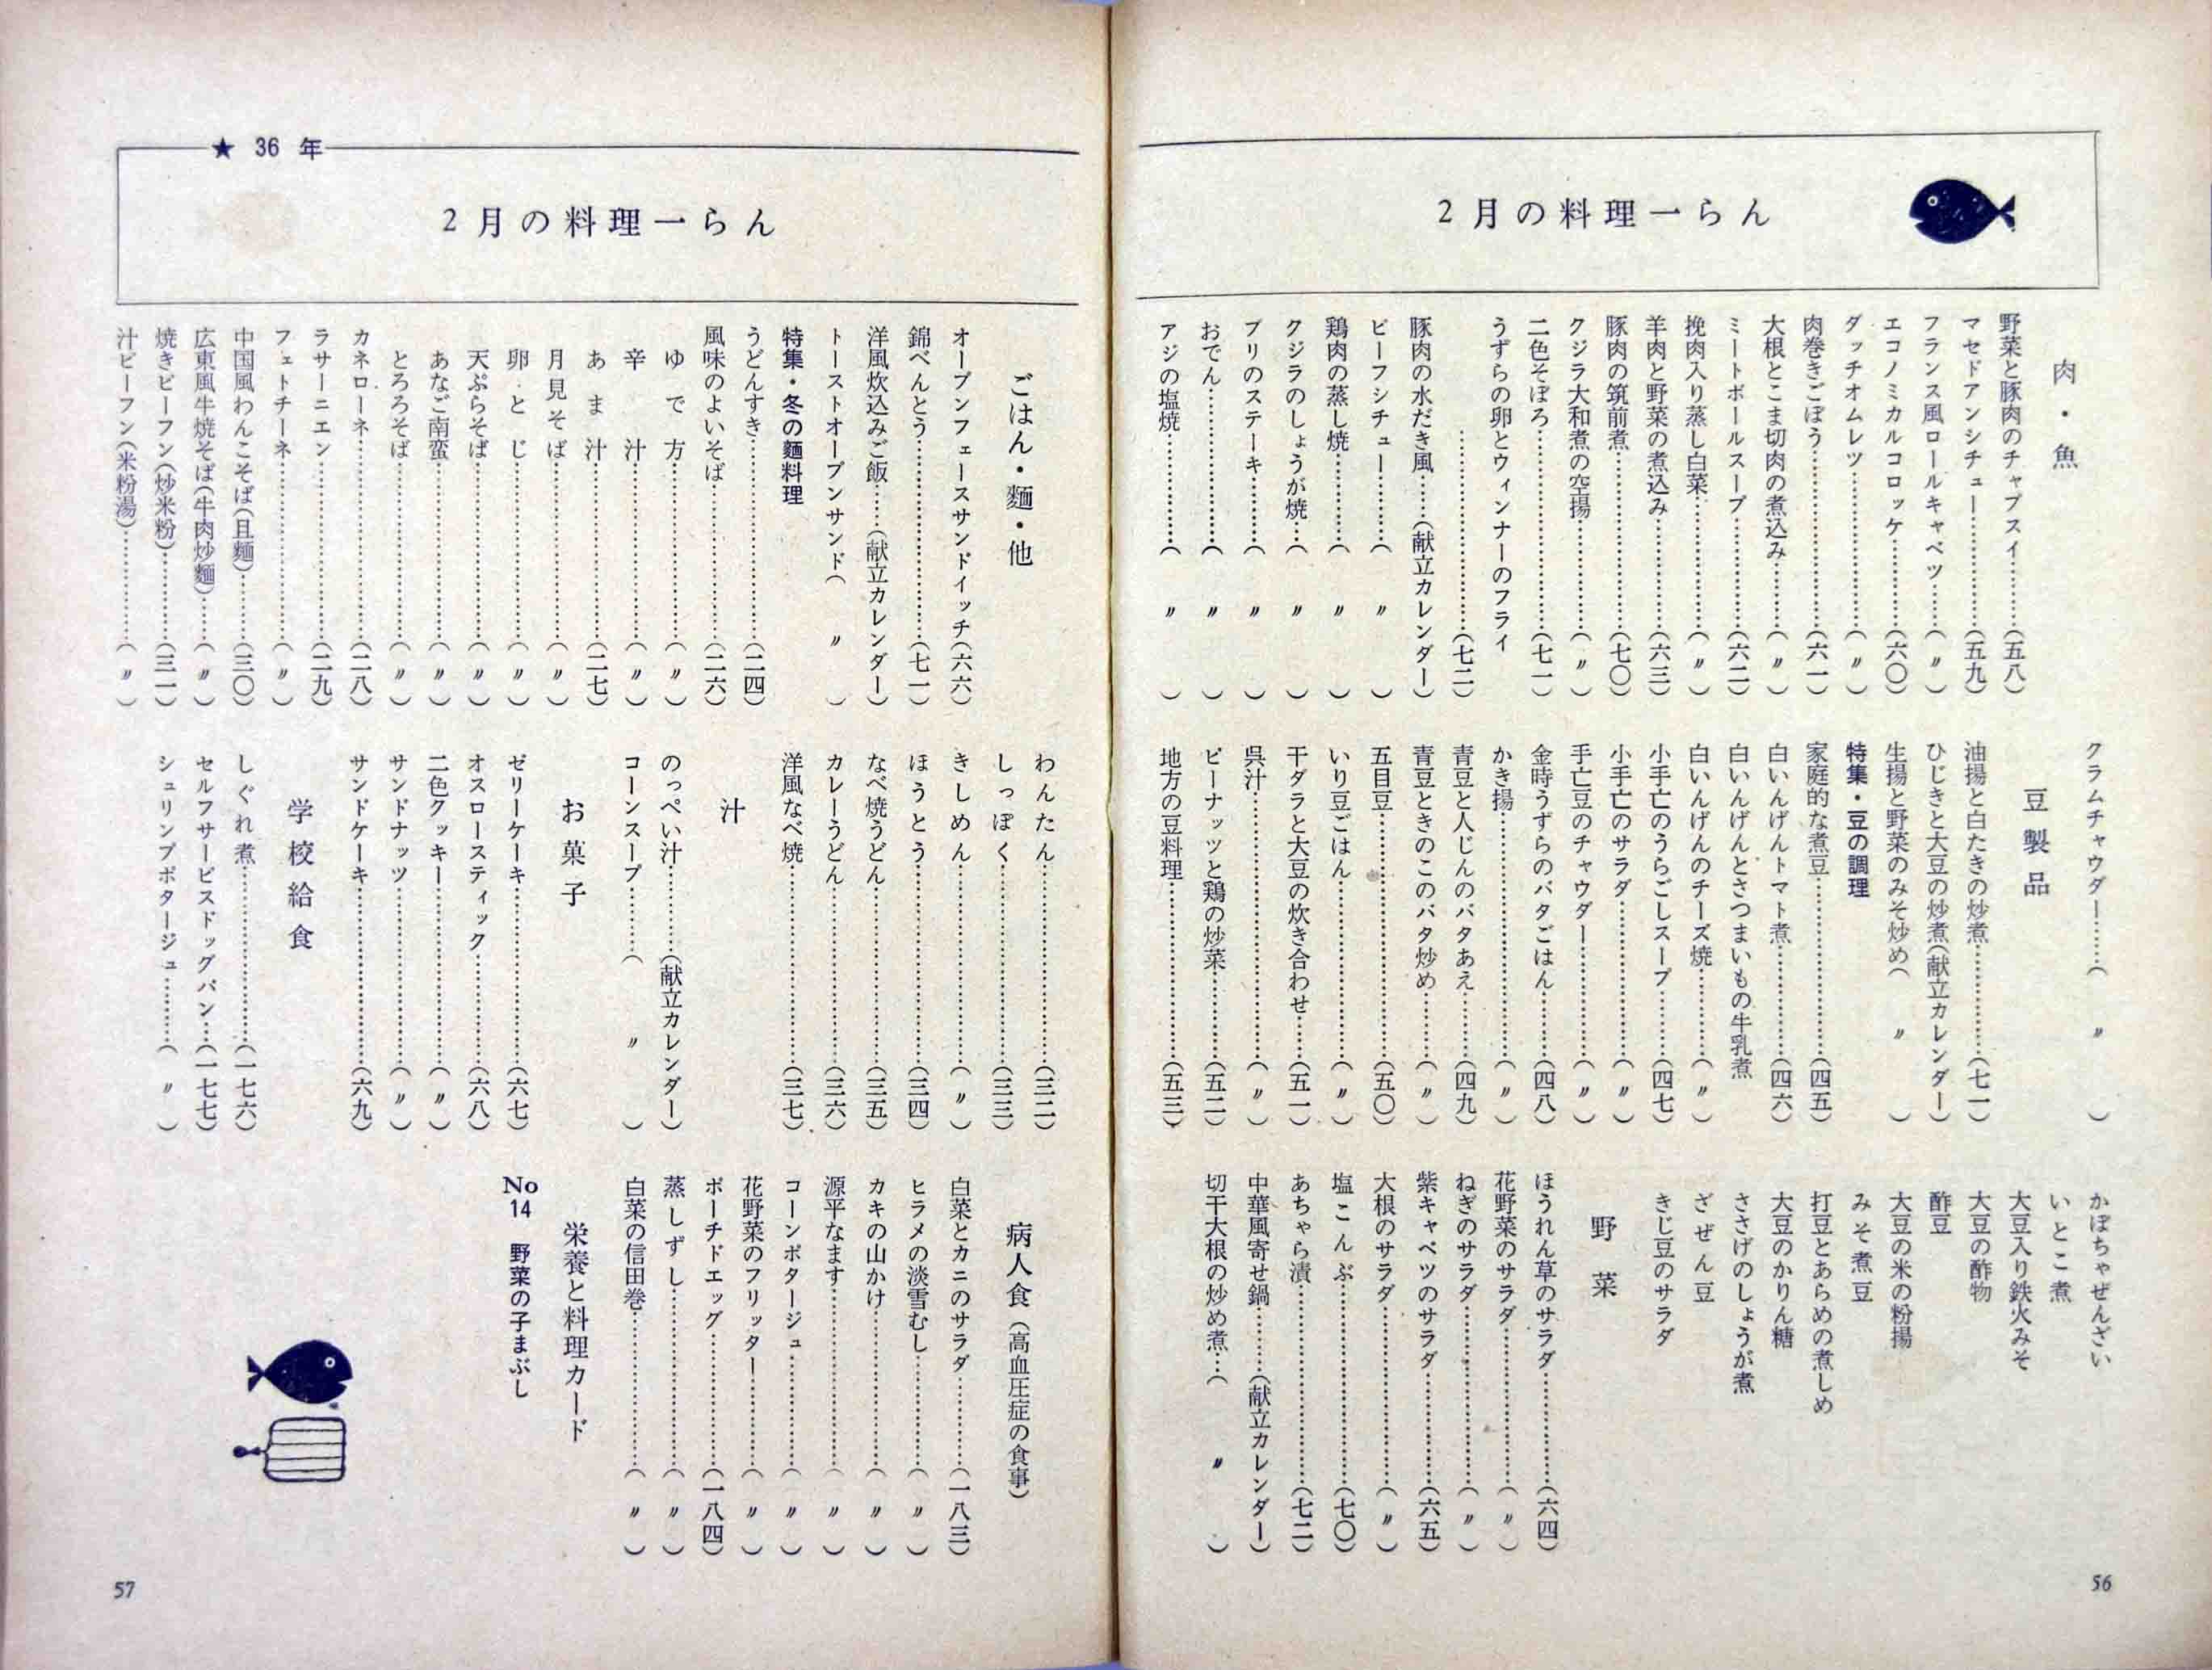 2月の料理一らん
肉・魚
野菜と豚肉のチャプスイ……(五八)
マセドアンシチュー……(五九)
フランス風ロールキャベツ……(〃)
エコノミカルコロッケ……(六〇)
ダッチオムレツ……(〃)
肉巻きごぼう……(六一)
大根とこま切肉の煮込み……(〃)
ミートボールスープ……(六二)
挽肉入り蒸し白菜……(〃)
羊肉と野菜の煮込み……(六三)
豚肉の筑前煮……(七〇)
クジラ大和煮の空揚……(〃)
二色そぼろ……(七一)
うずらの卵とウィンナーのフライ
……(七二)
豚肉の水だき風……(献立カレンダー)
ビーフシチュー……(〃)
鶏肉の蒸し焼……(〃)
クジラのしょうが焼……(〃)
ブリのステーキ……(〃)
おでん……(〃)
アジの塩焼……(〃)
クラムチャウダー……(〃)
豆製品
油揚と白たきの炒煮……(七一)
ひじきと大豆の炒煮(献立カレンダー)
生揚と野菜のみそ炒め(〃)
特集・豆の調理
家庭的な煮豆……(四五)
白いんげんトマト煮……(四六)
白いんげんとさつまいもの牛乳煮
白いんげんのチーズ焼……(〃)
小手亡のうらごしスープ……(四七)
小手亡のサラダ……(〃)
手亡豆のチャウダー……(〃)
金時うずらのバタごはん……(四八)
かき揚……(〃)
青豆と人じんのバタあえ……(四九)
青豆ときのこのバタ炒め……(〃)
五目豆……(五〇)
いり豆ごはん……(〃)
干ダラと大豆の炊き合わせ……(五一)
呉汁……(〃)
ピーナッツと鶏の炒菜……(五二)
地方の豆料理……(五三)
かぼちゃぜんざい
いとこ煮
大豆入り鉄火みそ
大豆の酢物
酢豆
大豆の米の粉揚
みそ煮豆
打豆とあらめの煮しめ
大豆のかりん糖
ささげのしょうが煮
ざぜん豆
きじ豆のサラダ
野菜
ほうれん草のサラダ……(六四)
花野菜のサラダ……(〃)
ねぎのサラダ……(〃)
紫キャベツのサラダ……(六五)
大根のサラダ……(〃)
塩こんぶ……(七〇)
あちゃら漬……(七二)
中華風寄せ鍋……(献立カレンダー)
切干大根の炒め煮…(〃)
56
★36年
2月の料理一らん
ごはん・麺・他
オープンフェースサンドイッチ(六六)
錦べんとう……(七一)
洋風炊込みご飯……(献立カレンダー)
トーストオープンサンド(〃)
特集・冬の麺料理
うどんすき……(二四)
風味のよいそば……(二六)
ゆで方……(〃)
辛汁……(〃)
あま汁……(二七)
月見そば……(〃)
卵とじ……(〃)
天ぷらそば……(〃)
あなご南蛮……(〃)
とろろそば……(〃)
カネローネ……(二八)
ラサーニエン……(二九)
フェトチーネ……(〃)
中国風わんこそば(且麺)……(三〇)
広東風牛焼そば(牛肉炒麺)……(〃)
焼きビーフン(炒米粉)……(三一)
汁ビーフン(米粉湯)……(〃)
わんたん……(三二)
しっぽく……(三三)
きしめん……(〃)
ほうとう……(三四)
なべ焼うどん……(三五)
カレーうどん……(三六)
洋風なべ焼……(三七)
汁
のっぺい汁……(献立カレンダー)
コーンスープ……(〃)
お菓子
ゼリーケーキ……(六七)
オスロースティック……(六八)
二色クッキー……(〃)
サンドナッツ……(〃)
サンドケーキ……(六九)
学校給食
しぐれ煮……(一七六)
セルフサービスドッグパン……(一七七)
シュリンプポタージュ……(〃)
病人食(高血圧症の食事)
白菜とカニのサラダ……(一八三)
ヒラメの淡雪むし……(〃)
カキの山かけ……(〃)
源平なます……(〃)
コーンポタージュ……(〃)
花野菜のフリッター……(〃)
ポーチドエッグ……(一八四)
蒸しずし……(〃)
白菜の信田巻……(〃)
栄養と料理カード
No14 野菜の子まぶし
57